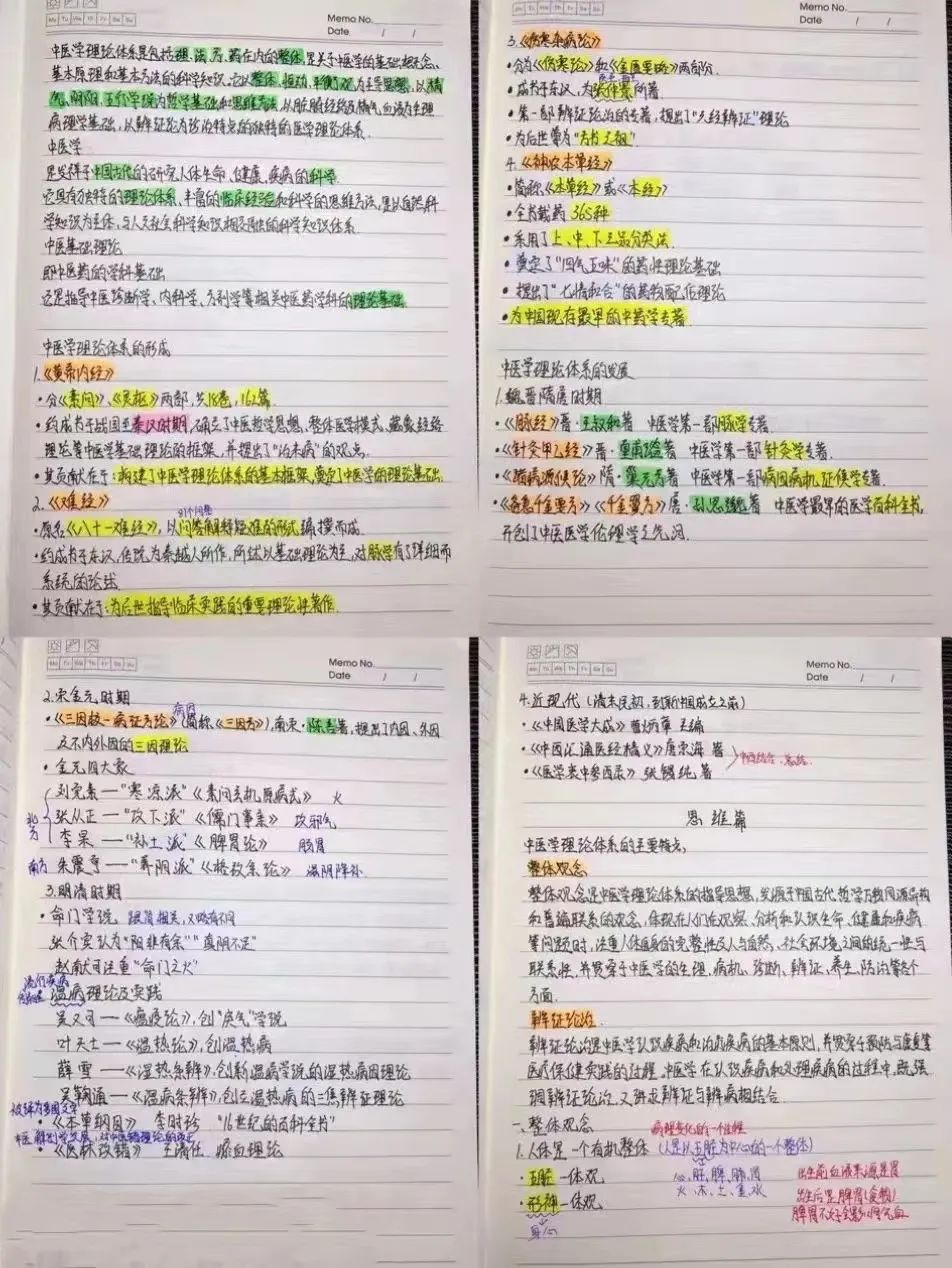 Mo Tu We Th Fr Sa Su
Memo No.
Date / /
中医学理论体系是包括理、法、方、药在内的整体,是关于中医学的基本概念、
基本原理和基本方法的科学知识。它以整体、恒动、平衡观为主导思想,以精
气、阴阳、五行学说为哲学基础和思维方法,以脏腑经络及精气血液为生理
病理学基础,以辨证论治为诊治特点的独特的医学理论体系.
中医学
是发祥于中国古代的研究人体生命、健康、疾病的科学.
它具有独特的理论体系、丰富的临床经验和科学的思维方法,是以自然科
学知识为主体、与人文社会科学知识相交融的科学知识体系.
中医基础理论
即中医药的学科基础
还是指导中医诊断学、内科学、方剂学等相关中医药学科的理论基础.
中医学理论体系的形成
1.《黄帝内经》
·分《素问》、《灵枢》两部,共18卷,162篇.
·约成书于战国至秦汉时期,确立了中医哲学思想、整体医学模式、藏象经络
理论等中医学基础理论的框架,并提出了"治未病"的观点.
·其贡献在于:构建了中医学理论体系的基本框架,奠定了中医学的理论基础.
2.《难经》
81个问题
·原名《八十一难经》,以问答解释疑难的形式编撰而成.
·约成书于东汉,传说为秦越人所作,所述以基础理论为主,对脉学有了详细而
系统的论述
·其贡献在于:为后世指导临床实践的重要理论性著作.
Mo Tu We Th Fr Sa Su
Memo No.
Date / /
3.《伤寒杂病论》
·分为《伤寒论》和《金匮要略》两部分.
·成书于东汉,为张仲景所著
·第一部辨证论治的专著,提出了"六经辨证"理论
·为后世誉为"方书之祖"
4.《神农本草经》
·简称《本草经》或《本经》
·全书载药365种
·采用了上、中、下三品分类法.
·奠定了"四气五味"的药性理论基础
·提出了"七情和合"的药物配伍理论
·为中国现存最早的中药学专著.
中医学理论体系的发展
1.魏晋隋唐时期
·《脉经》晋·王叔和著 中医学第一部脉学专著.
·《针灸甲乙经》晋·皇甫谧著 中医学第一部针灸学专著.
·《诸病源候论》隋·巢元方著 中医学第一部病因病机证候学专著.
·《备急千金要方》《千金翼方》唐·孙思邈著 中医学最早的医学百科全书,
开创了中医医学伦理学之先河.
Mo Tu We Th Fr Sa Su
Memo No.
Date / /
2.宋金元时期
病因
·《三因极一病证方论》(简称《三因方》),南宋·陈言著,提出了内因、外因
及不内外因的三因理论
·金元四大家
刘完素—"寒凉派"《素问玄机原病式》 火
北方
张从正—"攻下派"《儒门事亲》 攻邪气
李杲—"补土派"《脾胃论》 肠胃
南方 朱震亨—"养阴派"《格致余论》 滋阴降火
3.明清时期
·命门学说 跟肾相关,又略有不同
张介宾认为"阳非有余""真阴不足"
赵献可注重"命门之火"
流行疾病
温病理论及实践
吴又可—《瘟疫论》,创"戾气"学说
叶天士—《温热论》,创温热病
薛雪—《湿热条辨》,创新温病学说的湿热病因理论
吴鞠通—《温病条辨》,创立温热病的三焦辨证理论
被译为多国文字
·《本草纲目》 李时珍 "16世纪的百科全书"
·《医林改错》 王清任 瘀血理论
Mo Tu We Th Fr Sa Su
Memo No.
Date / /
4.近现代(清末民初,到新中国成立之前)
·《中国医学大成》曹炳章 主编
·《中西汇通医经精义》唐宗海 著
·《医学衷中参西录》张锡纯 著
思维篇
中医学理论体系的主要特点.
整体观念
整体观念是中医学理论体系的指导思想,发源于中国古代哲学万物同源异构
和普遍联系的观念,体现在人们在观察、分析和认识生命、健康和疾病
等问题时,注重人体自身的完整性及人与自然、社会环境之间的统一性与
联系性,并贯穿于中医学的生理、病机、诊断、辨证、养生、防治等各个
方面.
辨证论治.
辨证论治是中医学认识疾病和治疗疾病的基本原则,并贯穿于预防与康复等
医疗保健实践的过程.中医学在认识疾病和处理疾病的过程中,既强
调辨证论治,又讲求辨证与辨病相结合.
一、整体观念
1.人体是一个有机整体(人是以五脏为中心的一个整体)
·五脏一体观 心、肝、脾、肺、肾
火、木、土、金、水
·形神一体观